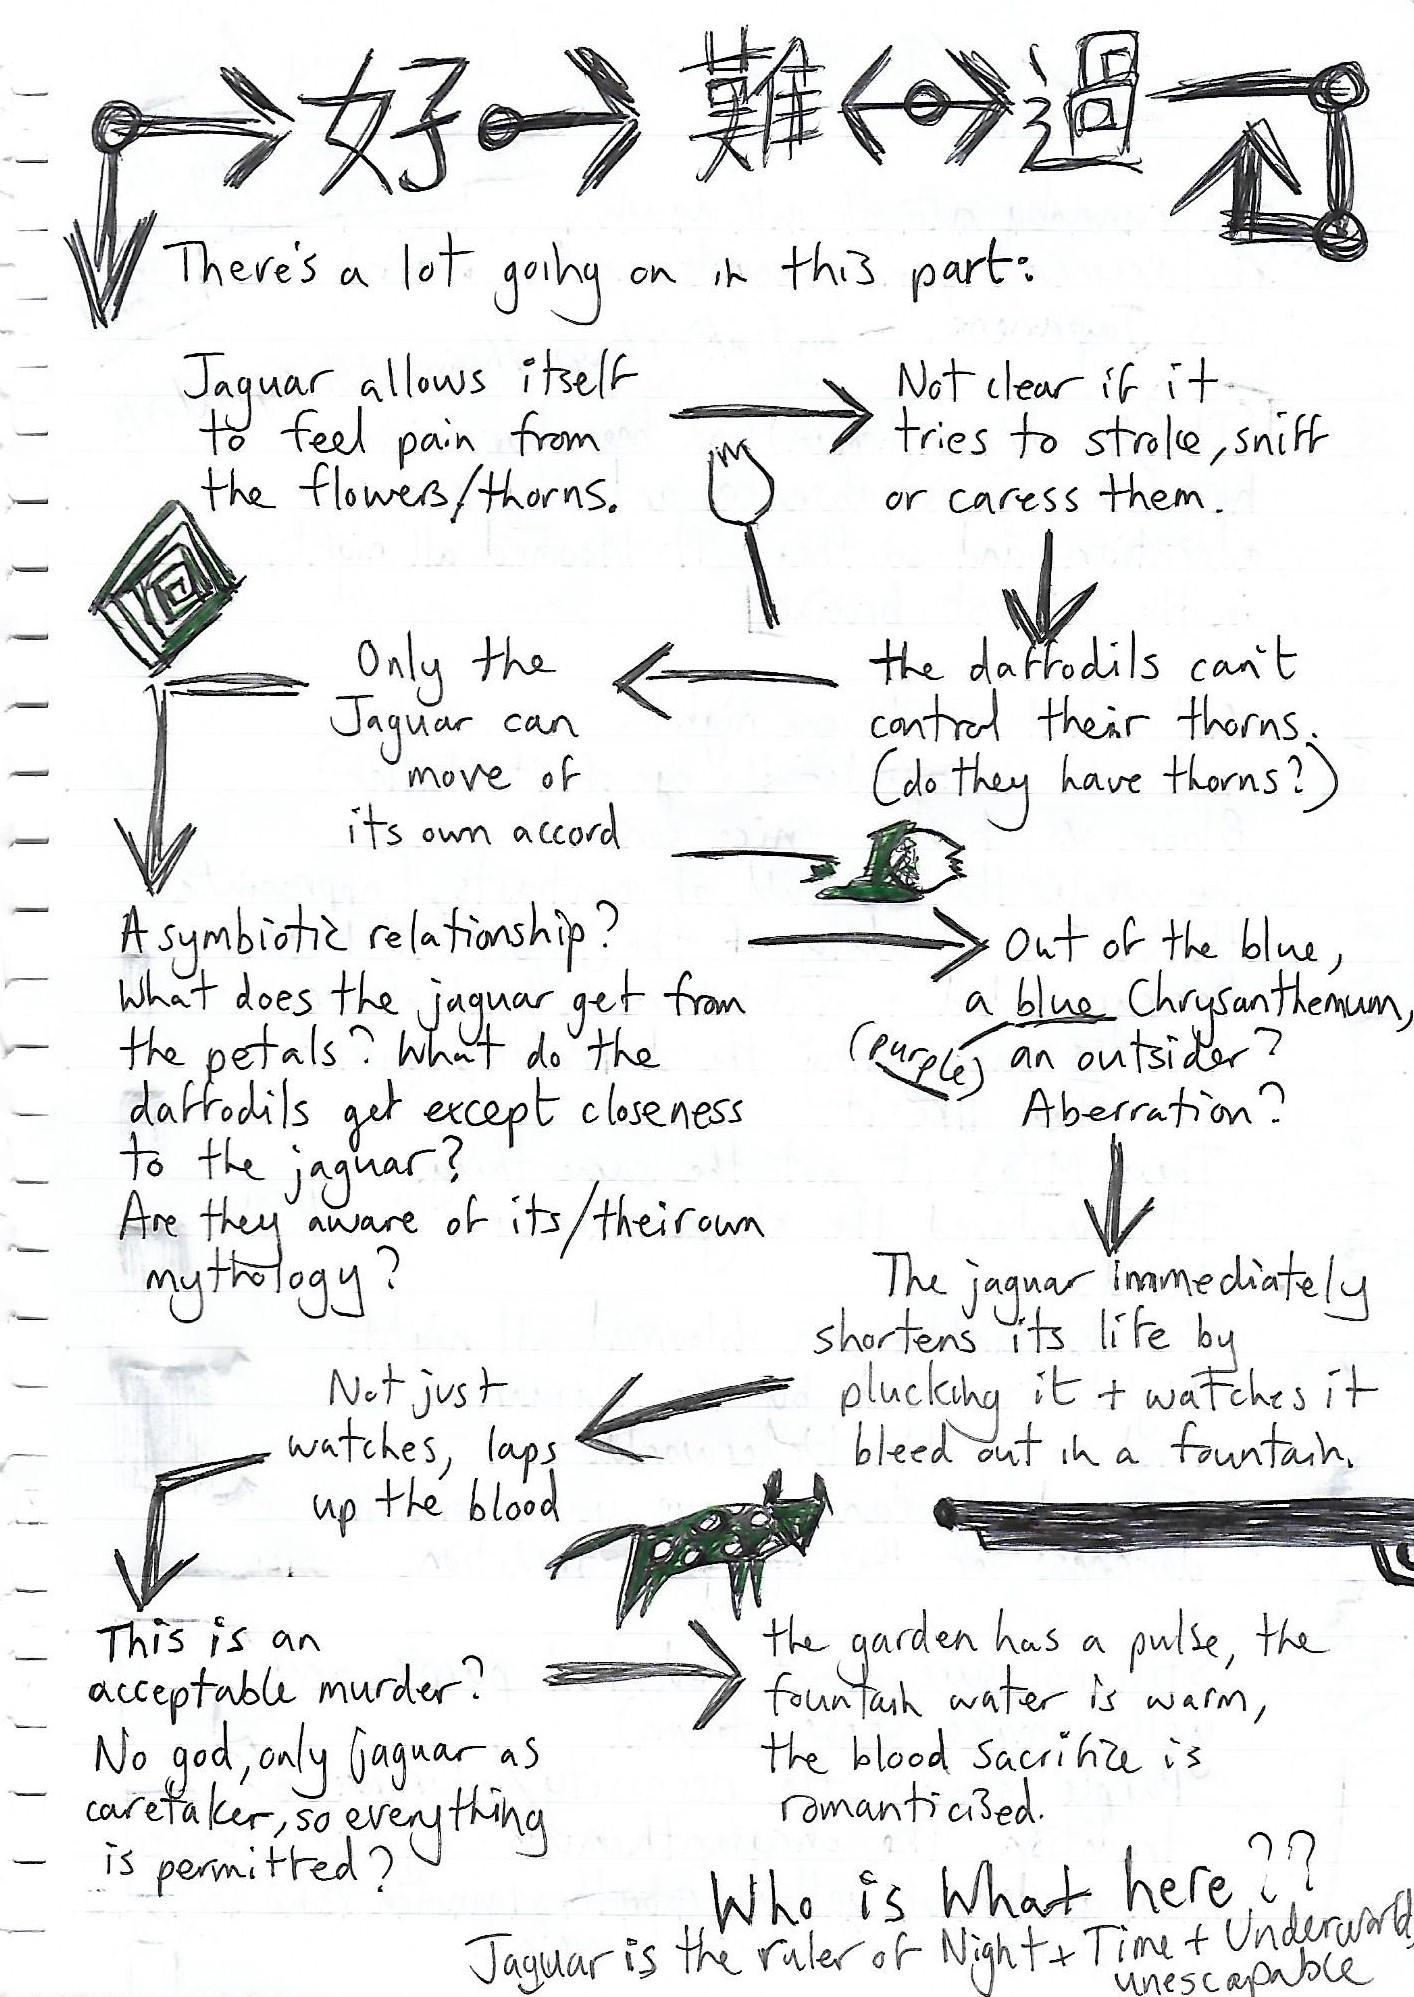 好 難 過
There's a lot going on in this part:
Jaguar allows itself
to feel pain from
the flowers/thorns.
Not clear if it
tries to stroke, sniff
or caress them.
the daffodils can't
control their thorns.
(do they have thorns?)
Only the
Jaguar can
move of
its own accord
A symbiotic relationship?
What does the jaguar get from
the petals? What do the
daffodils get except closeness
to the jaguar?
Are they aware of its/their own
mythology?
Out of the blue,
a blue Chrysanthemum,
(purple) an outsider?
Aberration?
The jaguar immediately
shortens its life by
plucking it + watches it
bleed out in a fountain.
Not just
watches, laps
up the blood
This is an
acceptable murder?
No god, only jaguar as
caretaker, so everything
is permitted?
the garden has a pulse, the
fountain water is warm,
the blood sacrifice is
romanticised.
Who is What here??
Jaguar is the ruler of Night + Time + Underworld,
unescapable